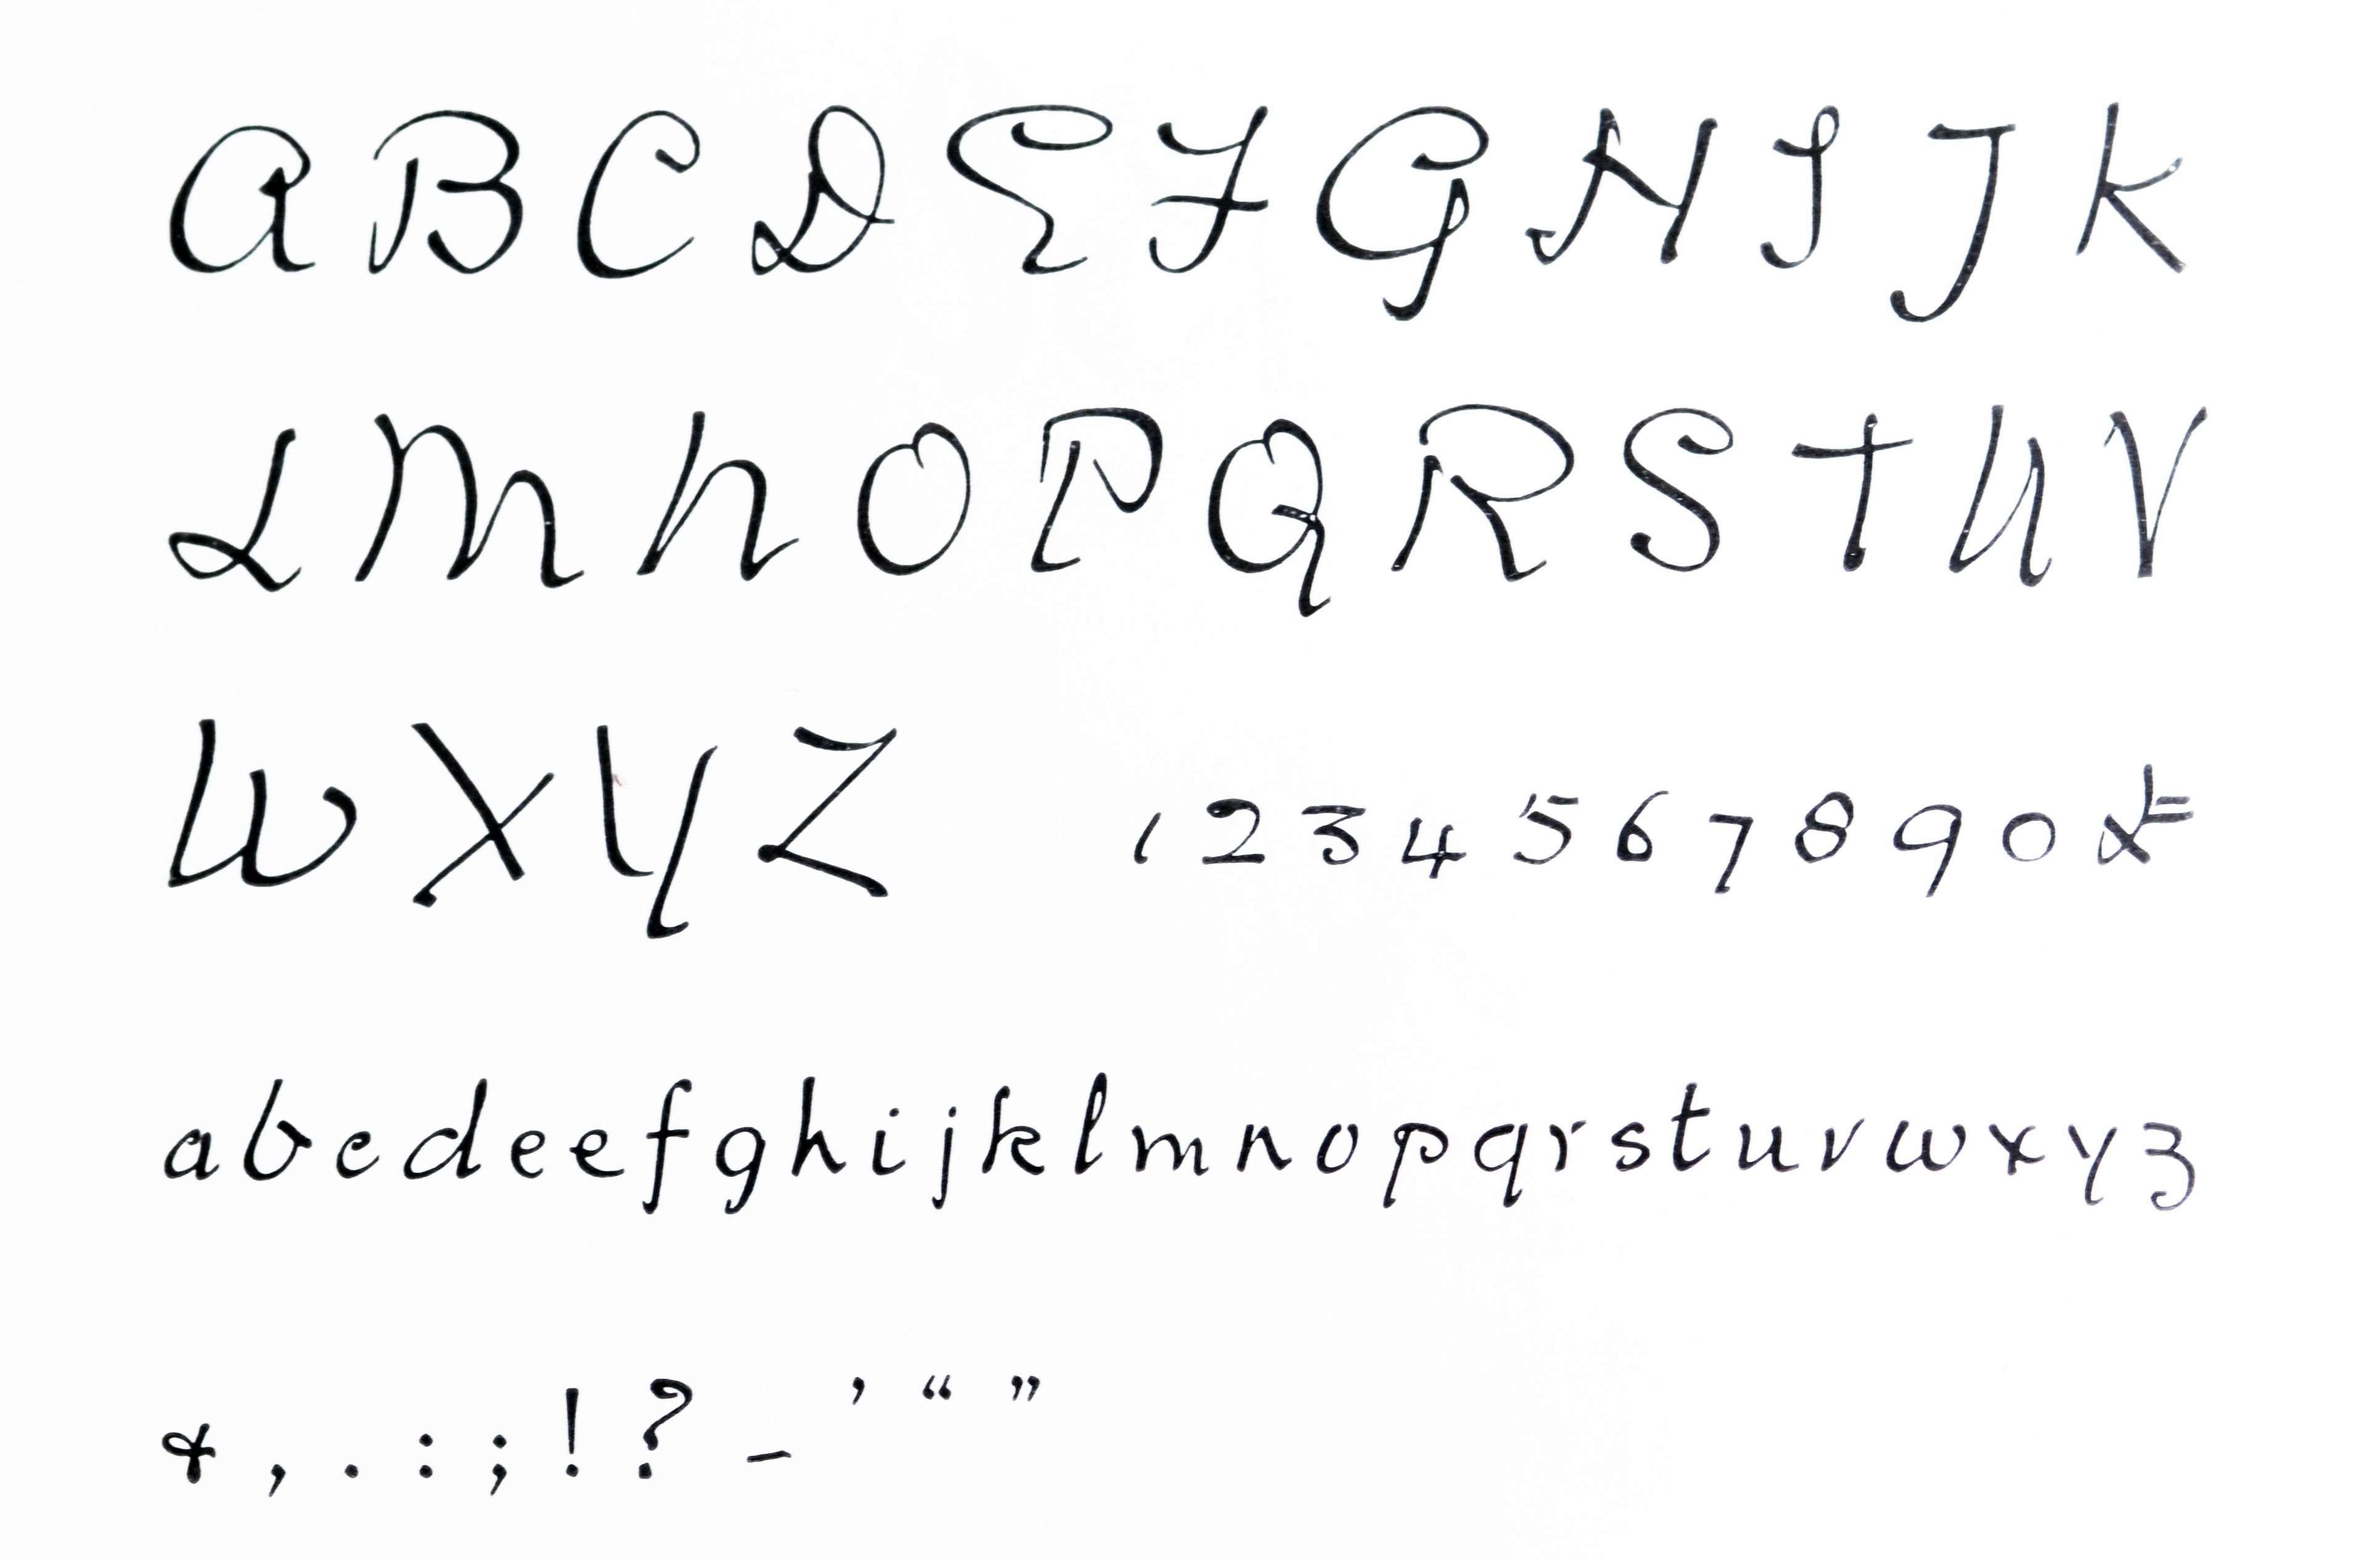 A B C D E F G H I J K
L M N O P Q R S T U V
W X Y Z 1 2 3 4 5 6 7 8 9 0
a b c d e e f g h i j k l m n o p q r s t u v w x y z
& , . : ; ! ? - ’ “ ”